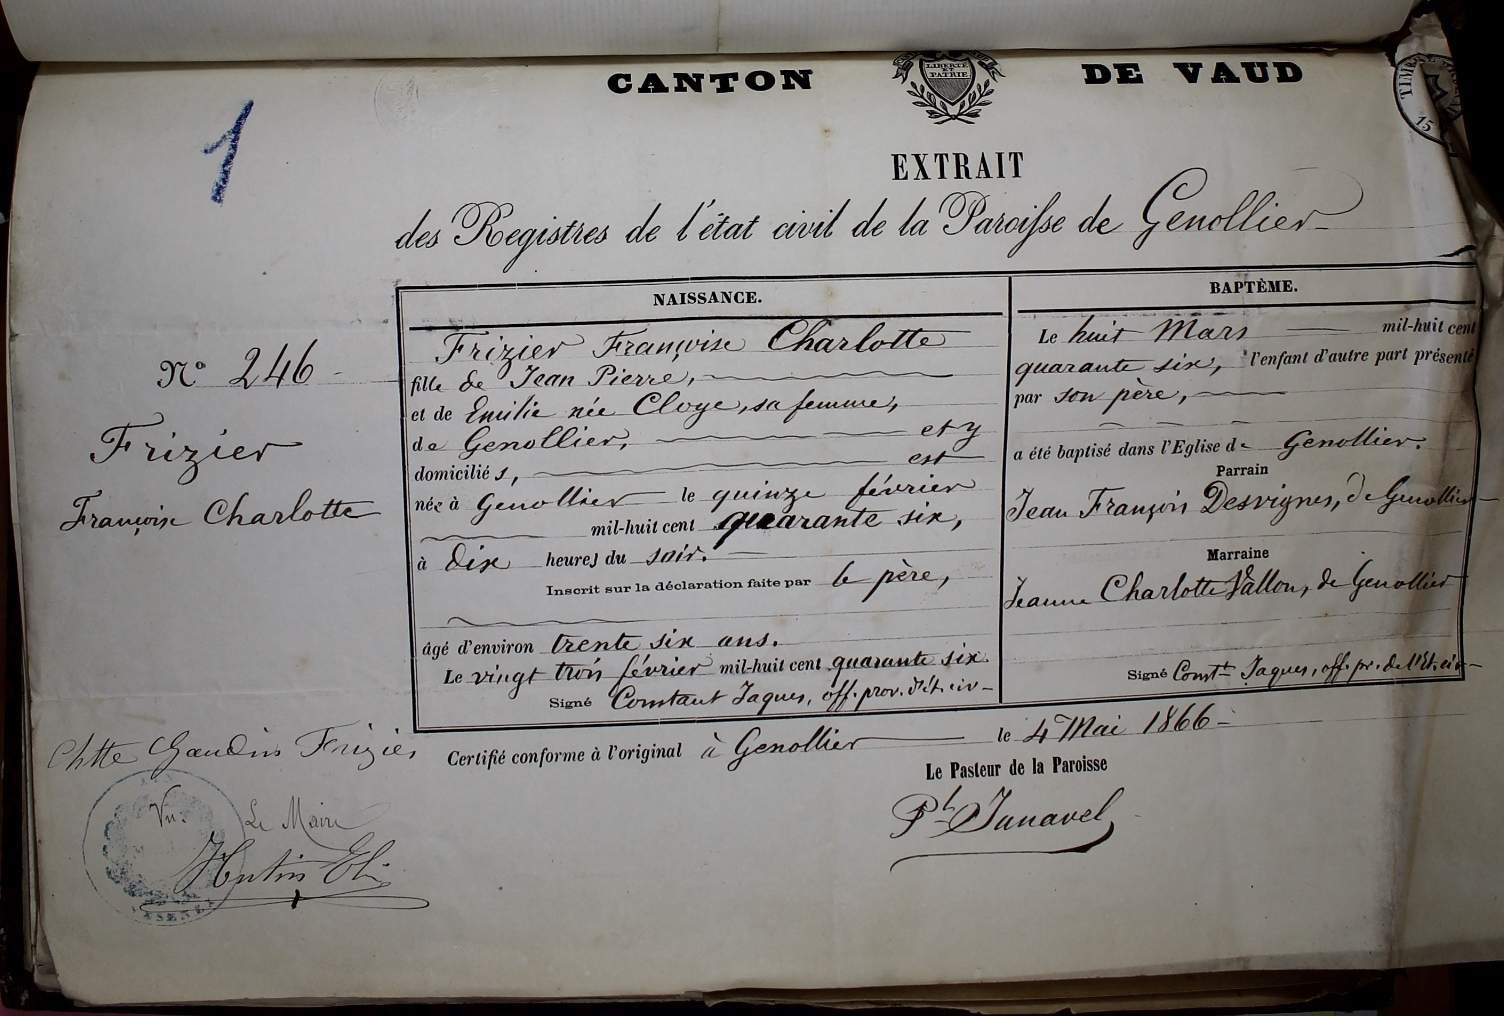 CANTON DE VAUD
LIBERTÉ
ET
PATRIE
15
1
EXTRAIT
des Registres de l'état civil de la Paroisse de Genollier
Nº 246
Frizier
Françoise Charlotte
NAISSANCE.
Frizier Françoise Charlotte
fille de Jean Pierre,
et de Emilie née Cloye, sa femme,
de Genollier, et y
domiciliés, est
née à Genollier le quinze février
mil-huit cent quarante six,
à dix heures du soir.
Inscrit sur la déclaration faite par le père,
âgé d'environ trente six ans.
Le vingt trois février mil-huit cent quarante six.
Signé Constant Jaques, off. prov. d'ét. civ
BAPTÈME.
Le huit Mars mil-huit cent
quarante six, l'enfant d'autre part présenté
par son père,
a été baptisé dans l'Eglise de Genollier.
Parrain
Jean François Desvignes, de Genollier
Marraine
Jeanne Charlotte Vallon, de Genollier
Signé Const. Jaques, off. pr. de l'Et. civ
Certifié conforme à l'original à Genollier le 4 Mai 1866
Le Pasteur de la Paroisse
Chtte Gaudin Frizier
Vu.
Le Maire